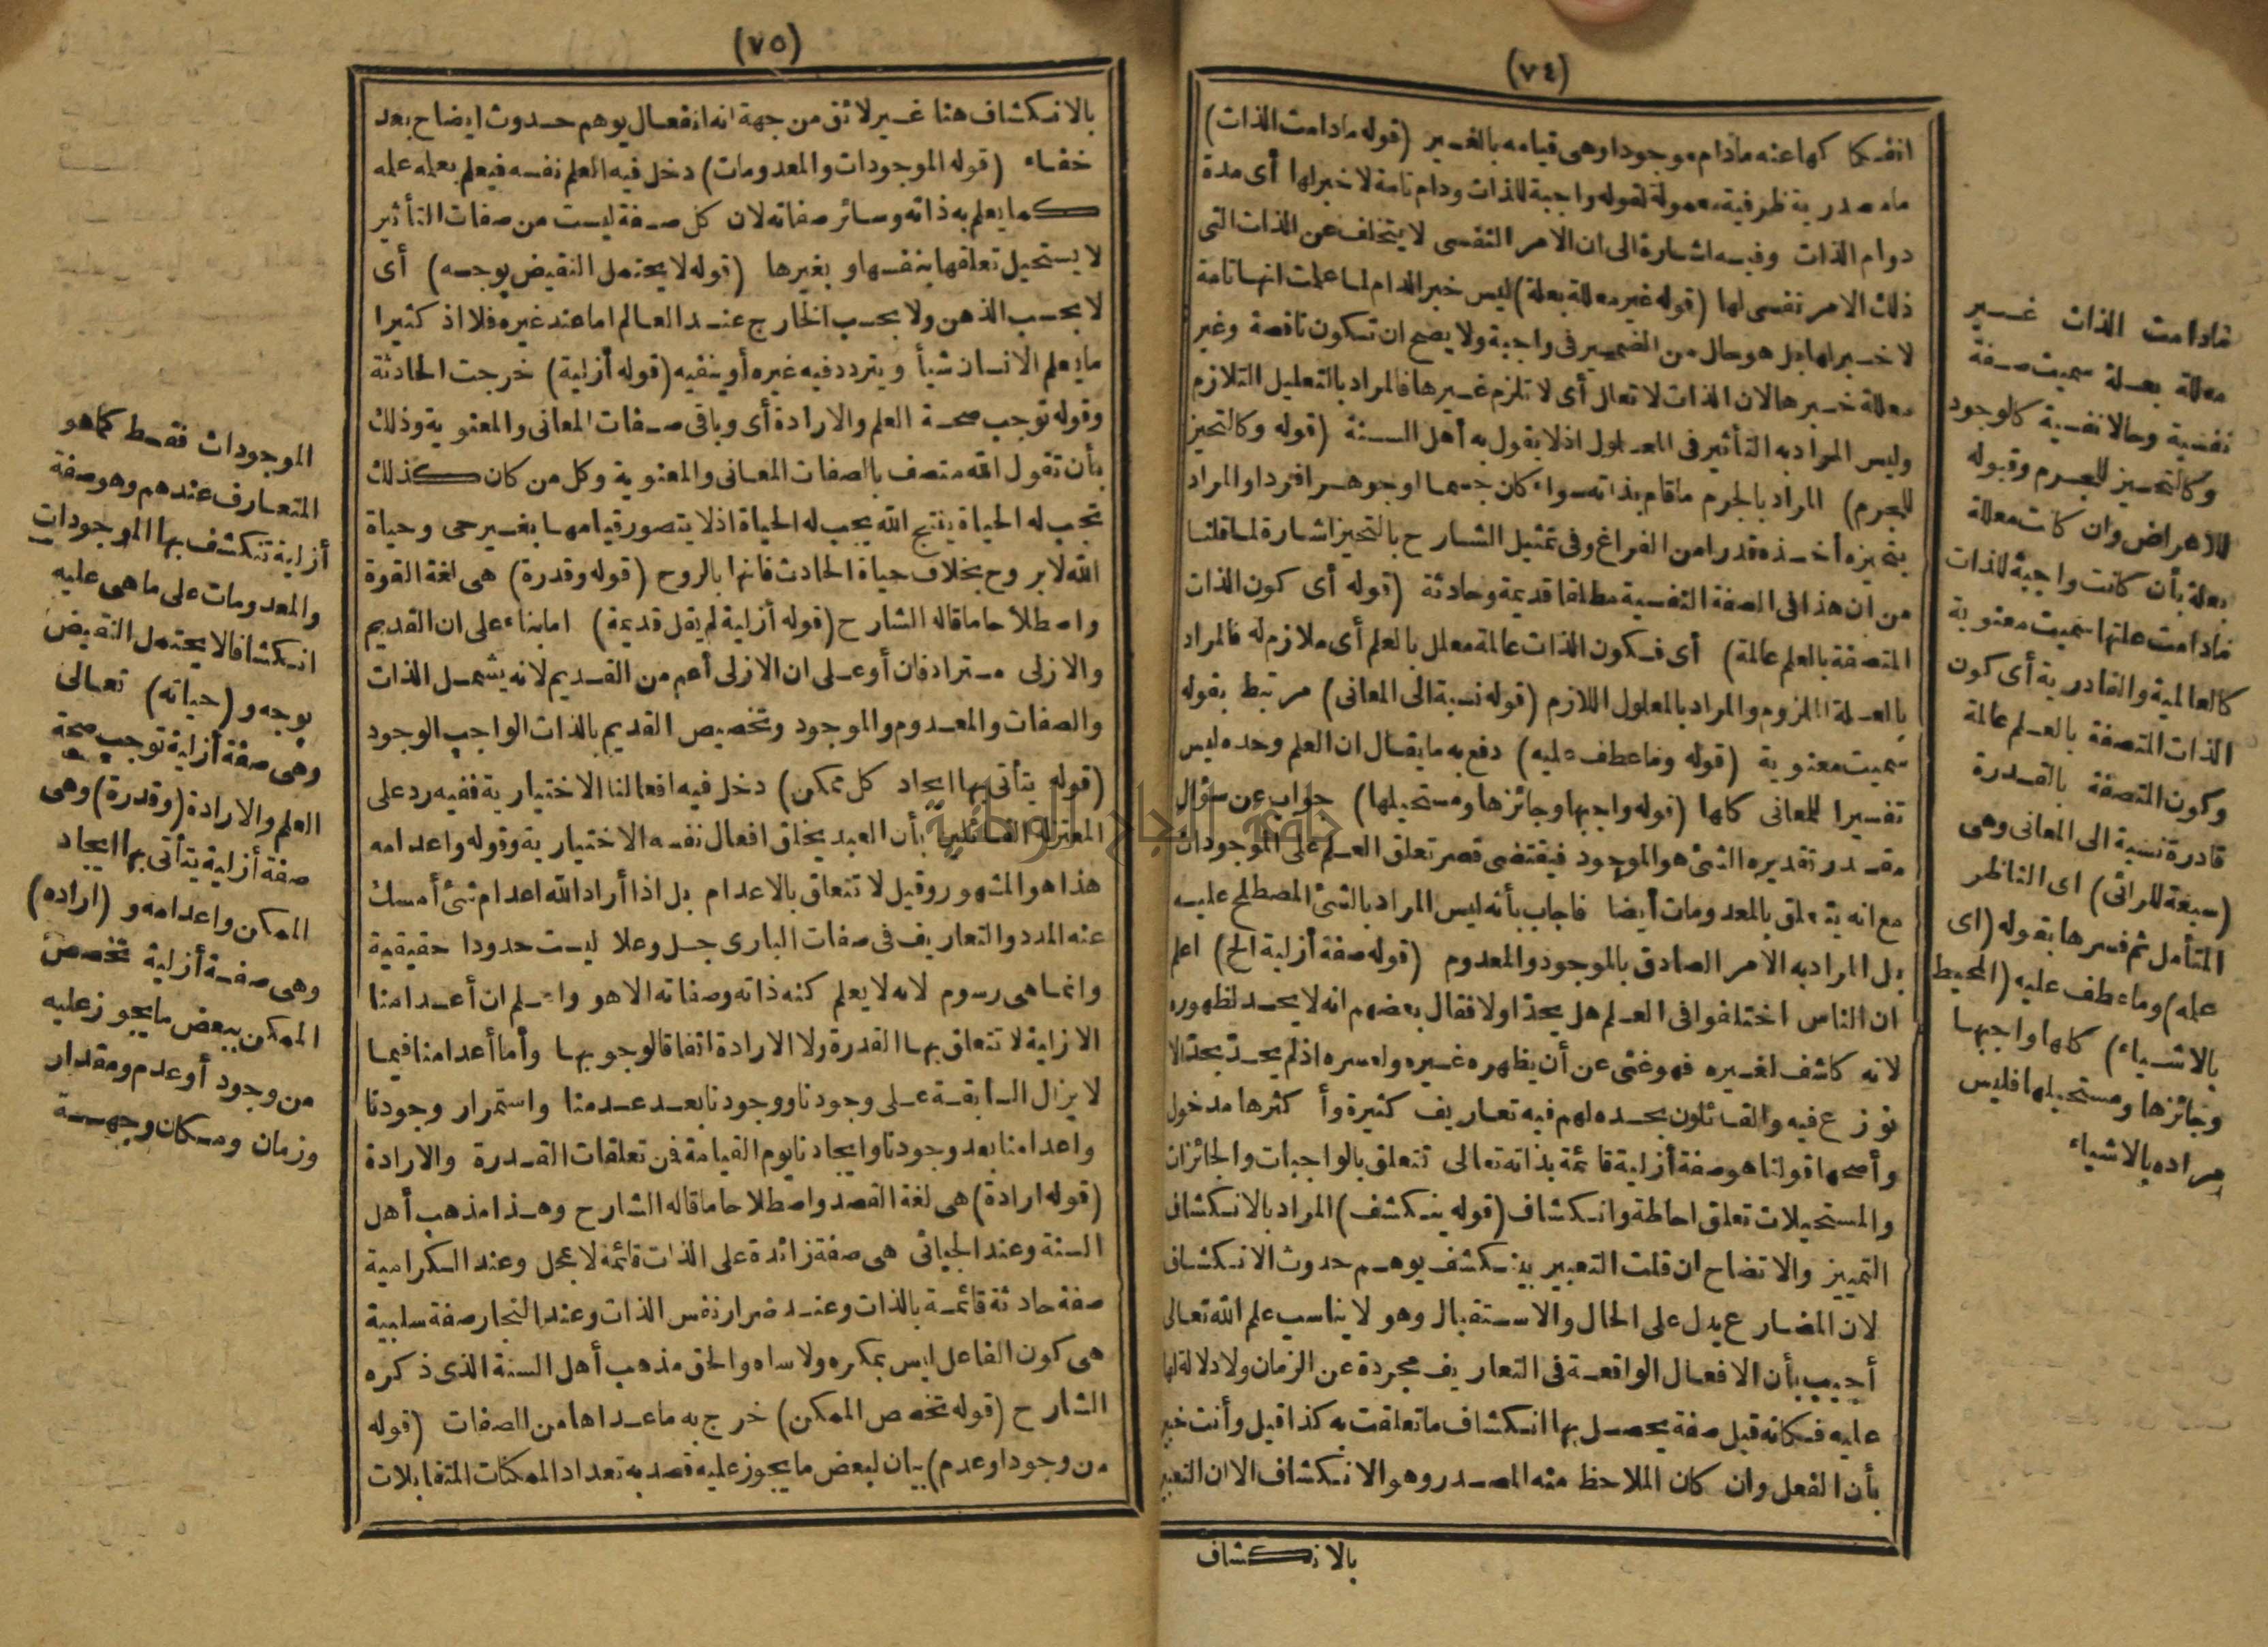 (٧٤)
انفكاكها عنه مادام موجودا وهى قيامه بالغير (قوله مادامت الذات)
ما مصدرية ظرفية معمولة لقوله واجبة للذات ودام تامة لاخبر لها أى مدة
دوام الذات وفيه اشارة الى ان الامر النفسى لا يتخلف عن الذات التى
ذلك الامر نفسى لها (قوله غير معللة بعلة) ليس خبر الدام لما علمت انها تامة
لا خبر لها بل هو حال من الضمير فى واجبة ولا يصح ان تكون ناقصة وغير
معللة خبرها لان الذات لا تعال أى لا تلزم غيرها فالمراد بالتعليل التلازم
وليس المراد به التأثير فى المعلول اذلا يقول به أهل السنة (قوله وكالتحيز
للجرم) المراد بالجرم ماقام بذاته سواء كان جسما او جوهرا فردا والمراد
بتحيزه أخذه قدرا من الفراغ وفى تمثيل الشارح بالتحيز اشارة لما قلنا
من ان هذا فى الصفة النفسية مطلقا قديمة وحادثة (قوله أى كون الذات
المتصفة بالعلم عالمة) أى فكون الذات عالمة معلل بالعلم أى ملازم له فالمراد
بالعلة الملزوم والمراد بالمعلول اللازم (قوله نسبة الى المعانى) مرتبط بقوله
سميت معنوية (قوله وما عطف عليه) دفع به ما يقال ان العلم وحده ليس
تفسيرا للمعانى كلها (قوله واجبها وجائزها ومستحيلها) جواب عن سؤال
مقدر تقديره الشئ هو الموجود فيقتضى قصر تعلق العلم على الموجودات
مع انه يتعلق بالمعدومات أيضا فاجاب بأنه ليس المراد بالشئ المصطلح عليه
بل المراد به الامر الصادق بالموجود والمعدوم (قوله صفة أزلية الخ) اعلم
ان الناس اختلفوا فى العلم هل يحد اولا فقال بعضهم انه لا يحد لظهوره
لانه كاشف لغيره فهو غنى عن أن يظهره غيره ولعسره اذلم يحد بحد الا
نوزع فيه والقائلون بحده لهم فيه تعاريف كثيرة وأ كثرها مدخول
وأصحها قولنا هو صفة أزلية قائمة بذاته تعالى تتعلق بالواجبات والجائزات
والمستحيلات تعلق احاطة وانكشاف (قوله ينكشف) المراد بالانكشاف
التمييز والاتضاح ان قلت التعبير بينكشف يوهم حدوث الانكشاف
لان المضارع يدل على الحال والاستقبال وهو لا يناسب علم الله تعالى
أجيب بأن الافعال الواقعة فى التعاريف مجردة عن الزمان ولا دلالة لها
عليه فكانه قيل صفة يحصل بها انكشاف ما تعلقت به كذا قيل وأنت خبير
بأن الفعل وان كان الملاحظ منه المصدر وهو الانكشاف الا ان التعبير
بالانكشاف
فادامت الذات غير
معللة بعلة سميت صفة
نفسية وحالا نفسية كالوجود
وكالتحيز للجرم وقبوله
للاعراض وان كانت معللة
بعلة بأن كانت واجبة للذات
مادامت علتها سميت معنوية
كالعالمية والقادرية أى كون
الذات المتصفة بالعلم عالمة
وكون المتصفة بالقدرة
قادرة نسبة الى المعانى وهى
(سبعة للرائى) اى الناظر
المتأمل ثم فسرها بقوله (اى
علمه) وما عطف عليه (المحيط
بالاشياء) كلها واجبها
وجائزها ومستحيلها فليس
مراده بالاشياء
(٧٥)
بالانكشاف هنا غير لائق من جهة انه انفعال يوهم حدوث ايضاح بعد
خفاء (قوله الموجودات والمعدومات) دخل فيه العلم نفسه فيعلم بعلمه علمه
كما يعلم به ذاته وسائر صفاته لان كل صفة ليست من صفات التأثير
لا يستحيل تعلقها بنفسها و بغيرها (قوله لا يحتمل النقيض بوجه) أى
لا بحسب الذهن ولا بحسب الخارج عند العالم اما عند غيره فلا اذ كثيرا
ما يعلم الانسان شيأ ويتردد فيه غيره أو ينفيه (قوله أزلية) خرجت الحادثة
وقوله توجب صحة العلم والارادة أى وباقى صفات المعانى والمعنوية وذلك
بأن تقول الله متصف بالصفات المعانى والمعنوية وكل من كان كذلك
تجب له الحياة ينتج الله يجب له الحياة اذ لا يتصور قيامها بغير حى وحياة
الله لا بروح بخلاف حياة الحادث فانها بالروح (قوله وقدرة) هى لغة القوة
واصطلاحا ما قاله الشارح (قوله أزلية لم يقل قديمة) اما بناء على ان القديم
والازلى مترادفان أو على ان الازلى أعم من القديم لانه يشمل الذات
والصفات والمعدوم والموجود وتخصيص القديم بالذات الواجب الوجود
(قوله يتأتى بها ايجاد كل ممكن) دخل فيه افعالنا الاختيارية ففيه رد على
المعتزلة القائلين بأن العبد يخلق افعال نفسه الاختيارية وقوله واعدامه
هذا هو المشهور وقيل لا تتعلق بالاعدام بل اذا أراد الله اعدام شئ أمسك
عنه المدد والتعاريف فى صفات البارى جل وعلا ليست حدودا حقيقية
وانما هى رسوم لانه لا يعلم كنه ذاته وصفاته الا هو واعلم ان أعدامنا
الازلية لا تتعلق بها القدرة ولا الارادة اتفاقا لوجوبها وأما أعدامنا فيما
لا يزال السابقة على وجودنا ووجودنا بعد عدمنا واستمرار وجودنا
واعدامنا بعد وجودنا وايجادنا يوم القيامة فن تعلقات القدرة والارادة
(قوله ارادة) هى لغة القصد واصطلاحا ما قاله الشارح وهذا مذهب أهل
السنة وعند الجبائى هى صفة زائدة على الذات قائمة لا بمحل وعند الكرامية
صفة حادثة قائمة بالذات وعند ضرار نفس الذات وعند النجار صفة سلبية
هى كون الفاعل ليس بمكره ولا ساه والحق مذهب أهل السنة الذى ذكره
الشارح (قوله تخصص الممكن) خرج به ما عداها من الصفات (قوله
من وجود او عدم) بيان لبعض ما يجوز عليه قصد به تعداد الممكنات المتقابلات
الموجودات فقط كما هو
المتعارف عندهم وهو صفة
أزلية تنكشف بها الموجودات
والمعدومات على ما هى عليه
انكشافا لا يحتمل النقيض
بوجه و (حياته) تعالى
وهى صفة أزلية توجب صحة
العلم والارادة (وقدرة) وهى
صفة أزلية يتأتى بها ايجاد
الممكن واعدامه و (اراده)
وهى صفة أزلية تخصص
الممكن ببعض ما يجوز عليه
من وجود أو عدم ومقدار
وزمان ومكان وجهة